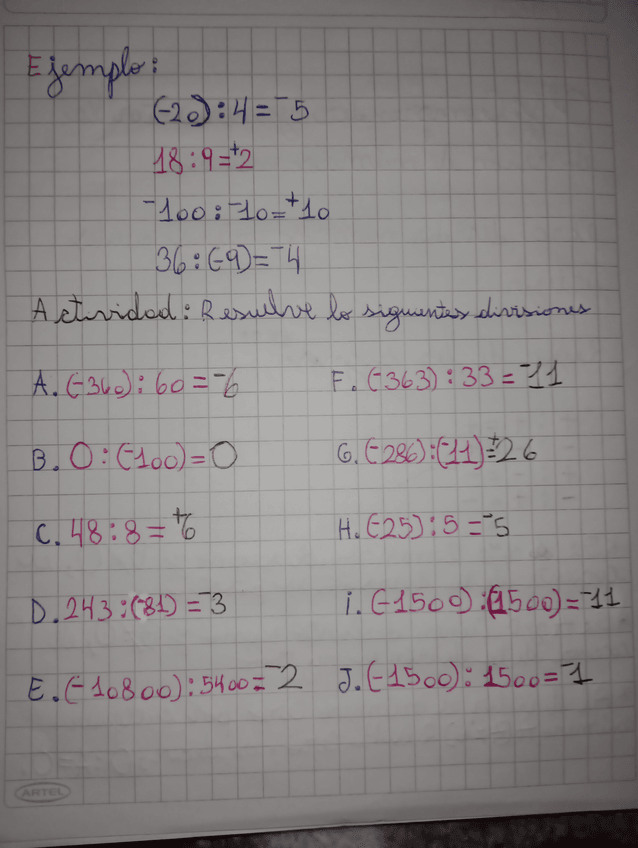 Ejemplo:
(-20):4=-5
18:9=+2
-100:-10=+10
36:(-9)=-4
Actividad: Resuelve lo siguientes divisiones
A. (-360):60=-6
F. (-363):33=-11
B. 0:(-100)=0
G. (-286):(-11)=+26
C. 48:8=+6
H. (-25):5=-5
D. 243:(-81)=-3
i. (-1500):(1500)=-11
E. (-10800):5400=-2
J. (-1500):1500=-1
ARTEL